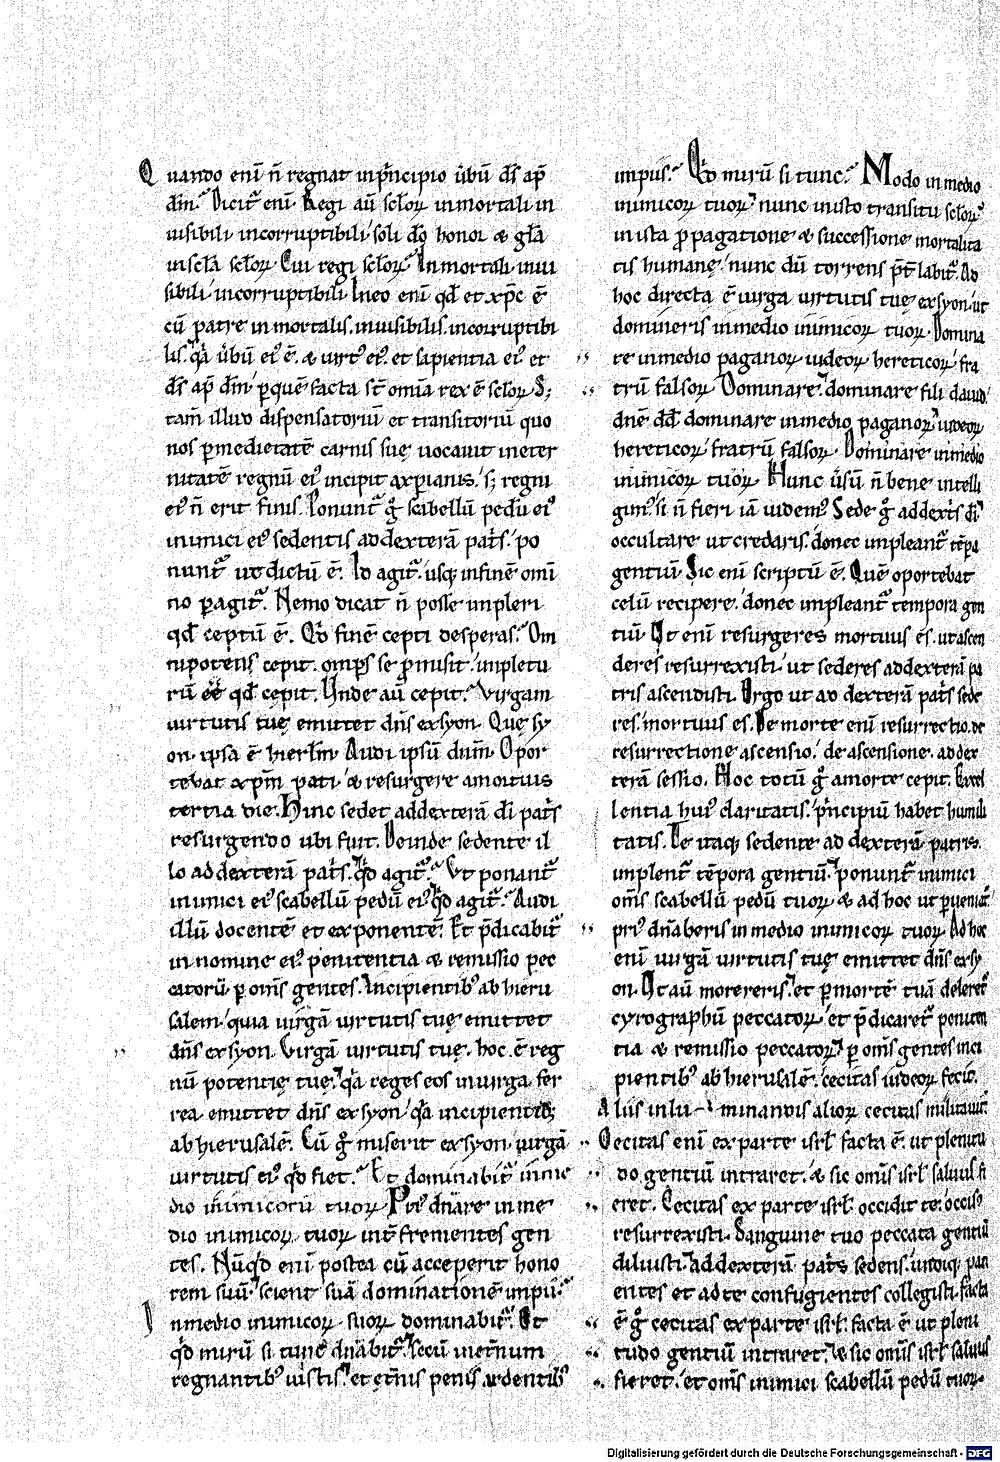 Quando enī n̄ regnat inp̄ncipio ūbū d̄s ap̄
d̄m. Dicit̄ enī Regi aū scl̄oꝝ inmortali in
uisibili incorruptibili soli d̄o honor & gl̄a
inscl̄a scl̄oꝝ Cui regi scl̄oꝝ Inmortali inui
sibili incorruptibili Ineo enī qd̄ et xp̄c ē
cū patre inmortalis. inuisibilis. incorruptibi
lis. q̄a ūbū eiꝰ ē. & uirtꝰ eiꝰ. et sapientia eiꝰ et
d̄s ap̄ d̄m p̱quē facta s̄t om̄ia rex ē scl̄oꝝ S;
tam̄ illud dispensatoriū et transitoriū quo
nos p̱medietatē carnis suę uocauit ineter
nitatē regnū eiꝰ incipit axp̄ianis. s; regni
eiꝰ n̄ erit finis. Ponunt̄ g̊ scabellū pedū eiꝰ
inimici eiꝰ sedentis addexterā pat̄s. po
nunt̄ ut dictū ē. Id agit̄. usq; infinē om̄i
no p̱agit̄. Nemo dicat n̄ posse impleri
qd̄ ceptū ē. Qd̄ finē cepti desperas. Om
nipotens cepit. omp̄s se p̱misit impletu
rū ēē qd̄ cepit. Unde aū cepit. Virgam
uirtutis tuę emittet dn̄s exsyon Que sy
on ipsa ē hierl̄m Audi ipsū dn̄m Opor
tebat xp̄m pati & resurgere amortuis
tertia die. Hinc sedet addexterā d̄i pat̄s
resurgendo ubi fuit. Deinde sedente il
lo addexterā pat̄s. qd̄ agit̄. Vt ponant̄
inimici eiꝰ scabellū pedū eiꝰ qd̄ agit̄. Audi
illū docentē et exponentē. Et p̄dicabit̄
innomine eiꝰ penitentia & remissio pec
catorū p̱ om̄s gentes. Incipientibꝰ ab hieru
salem. quia uirgā uirtutis tuę emittet
dn̄s exsyon Virgā uirtutis tuę. hoc. ē reg
nū potentię tuę. q̄a reges eos inuirga fer
rea emittet dn̄s exsyon q̄a incipientib;
ab hierusalē. Cū g̊ miserit exsyon uirgā
uirtutis eiꝰ qd̄ fiet. Et dominabit̄ inme
dio inimicorū tuoꝝ Priꝰ dn̄are inme
dio inimicoꝝ tuoꝝ int̄ frementes gen
tes. Nūqd̄ enī postea cū acceperit hono
rem suū scient suā dominationē impii.
Inmedio inimicoꝝ suoꝝ dominabit̄. Et
qd̄ mirū si tunc dn̄abit̄. secū inet̄num
regnantibꝰ iūstis. et ęt̄nis penis ardentibꝰ
impiis. Qd̄ mirū si tunc. Modo inmedio
inimicoꝝ tuoꝝ nunc inisto transitu scl̄oꝝ
inista p̱pagatione & successione mortalita
tis humane nunc dū torrens p̄t̄labit̄. Ad
hoc directa ē uirga uirtutis tuę exsyon ut
domineris inmedio inimicoꝝ tuoꝝ Domina
re inmedio paganoꝝ iudeoꝝ hereticoꝝ fra
trū falsoꝝ Dominare dominare fili dauid
dn̄e dd̄ dominare inmedio paganoꝝ iudeoꝝ
hereticoꝝ fratrū falsoꝝ Dominare inmedio
inimicoꝝ tuoꝝ Hunc ūsū n̄ bene intelli
gimꝰ si n̄ fieri iā uidemꝰ Sede g̊ addext̄s d̄i
occultare ut credaris. donec impleant̄ tēpa
gentiū Sic enī scriptū ē. Quē oportebat
celū recipere. donec impleant̄ tempora gen
tiū Ut enī resurgeres mortuus es. ut ascen
deres resurrexisti ut sederes addexterā pa
tris ascendisti. Ergo ut ad dexterā pat̄s sede
res mortuus es. De morte enī resurrectio. de
resurrectione ascensio. de ascensione. addex
terā sessio. Hoc totū g̊ amorte cepit. Excel
lentia huiꝰ claritatis. p̄ncipiū habet humili
tatis. Te itaq; sedente ad dexterā patris
implent̄ tēpora gentiū ponunt̄ inimici
om̄s scabellū pedū tuoꝝ & ad hoc ut p̱ueniat̄
priꝰ dn̄aberis inmedio inimicoꝝ tuoꝝ Ad hoc
enī uirgā uirtutis tuę emittet dn̄s exsy
on Ut aū morereris et p̱mortē tuā deleret̄
cyrographū peccatoꝝ et p̄dicaret̄ peniten
tia & remissio peccatoꝝ p̱ om̄s gentes inci
pientibꝰ abhierusalē. cecitas iudeoꝝ fecit.
Aliis inluminandis alioꝝ cecitas militauit.
Cecitas enī exparte isrl̄ facta ē. ut plenitu
do gentiū intraret. & sic om̄is isrl̄ saluus fi
eret. Cecitas ex parte isrl̄ occidit te. occisꝰ
resurrexisti. Sanguine tuo peccata gentiū
diluisti addexterā pat̄s sedens. undiq; pati
entes et adte confugientes collegisti. facta
ē g̊ cecitas exparte isrl̄ facta ē ut pleni
tudo gentiū intraret. & sic om̄is isrl̄ saluus
fieret. et om̄s inimici scabellū pedū tuoꝝ
Digitalisierung gefördert durch die Deutsche Forschungsgemeinschaft - DFG